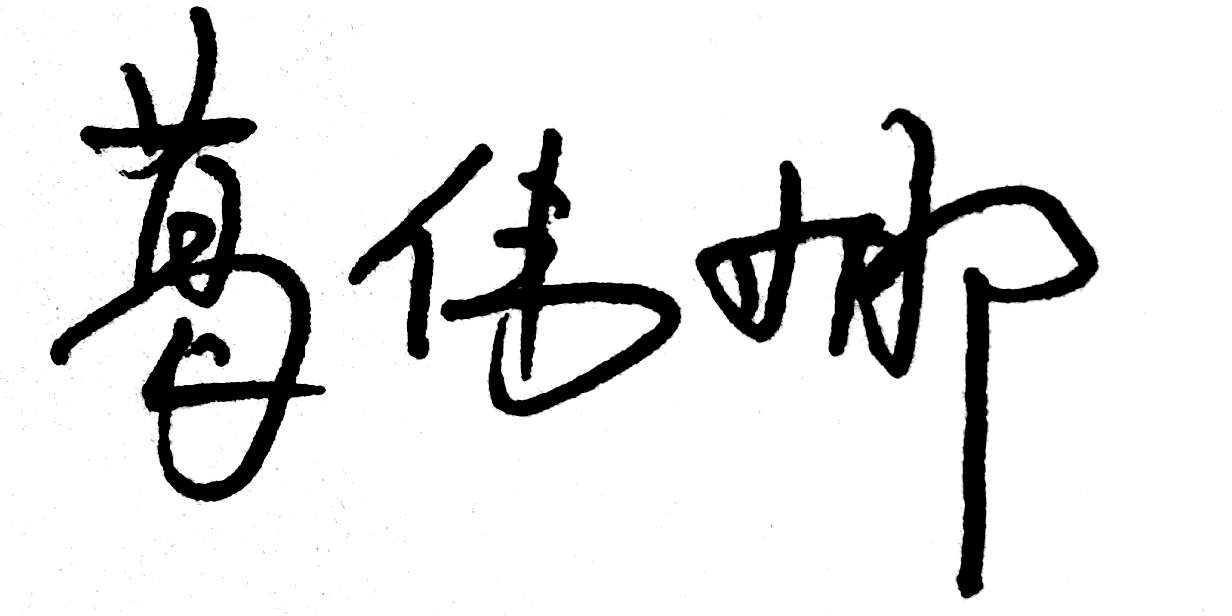 葛伟娜